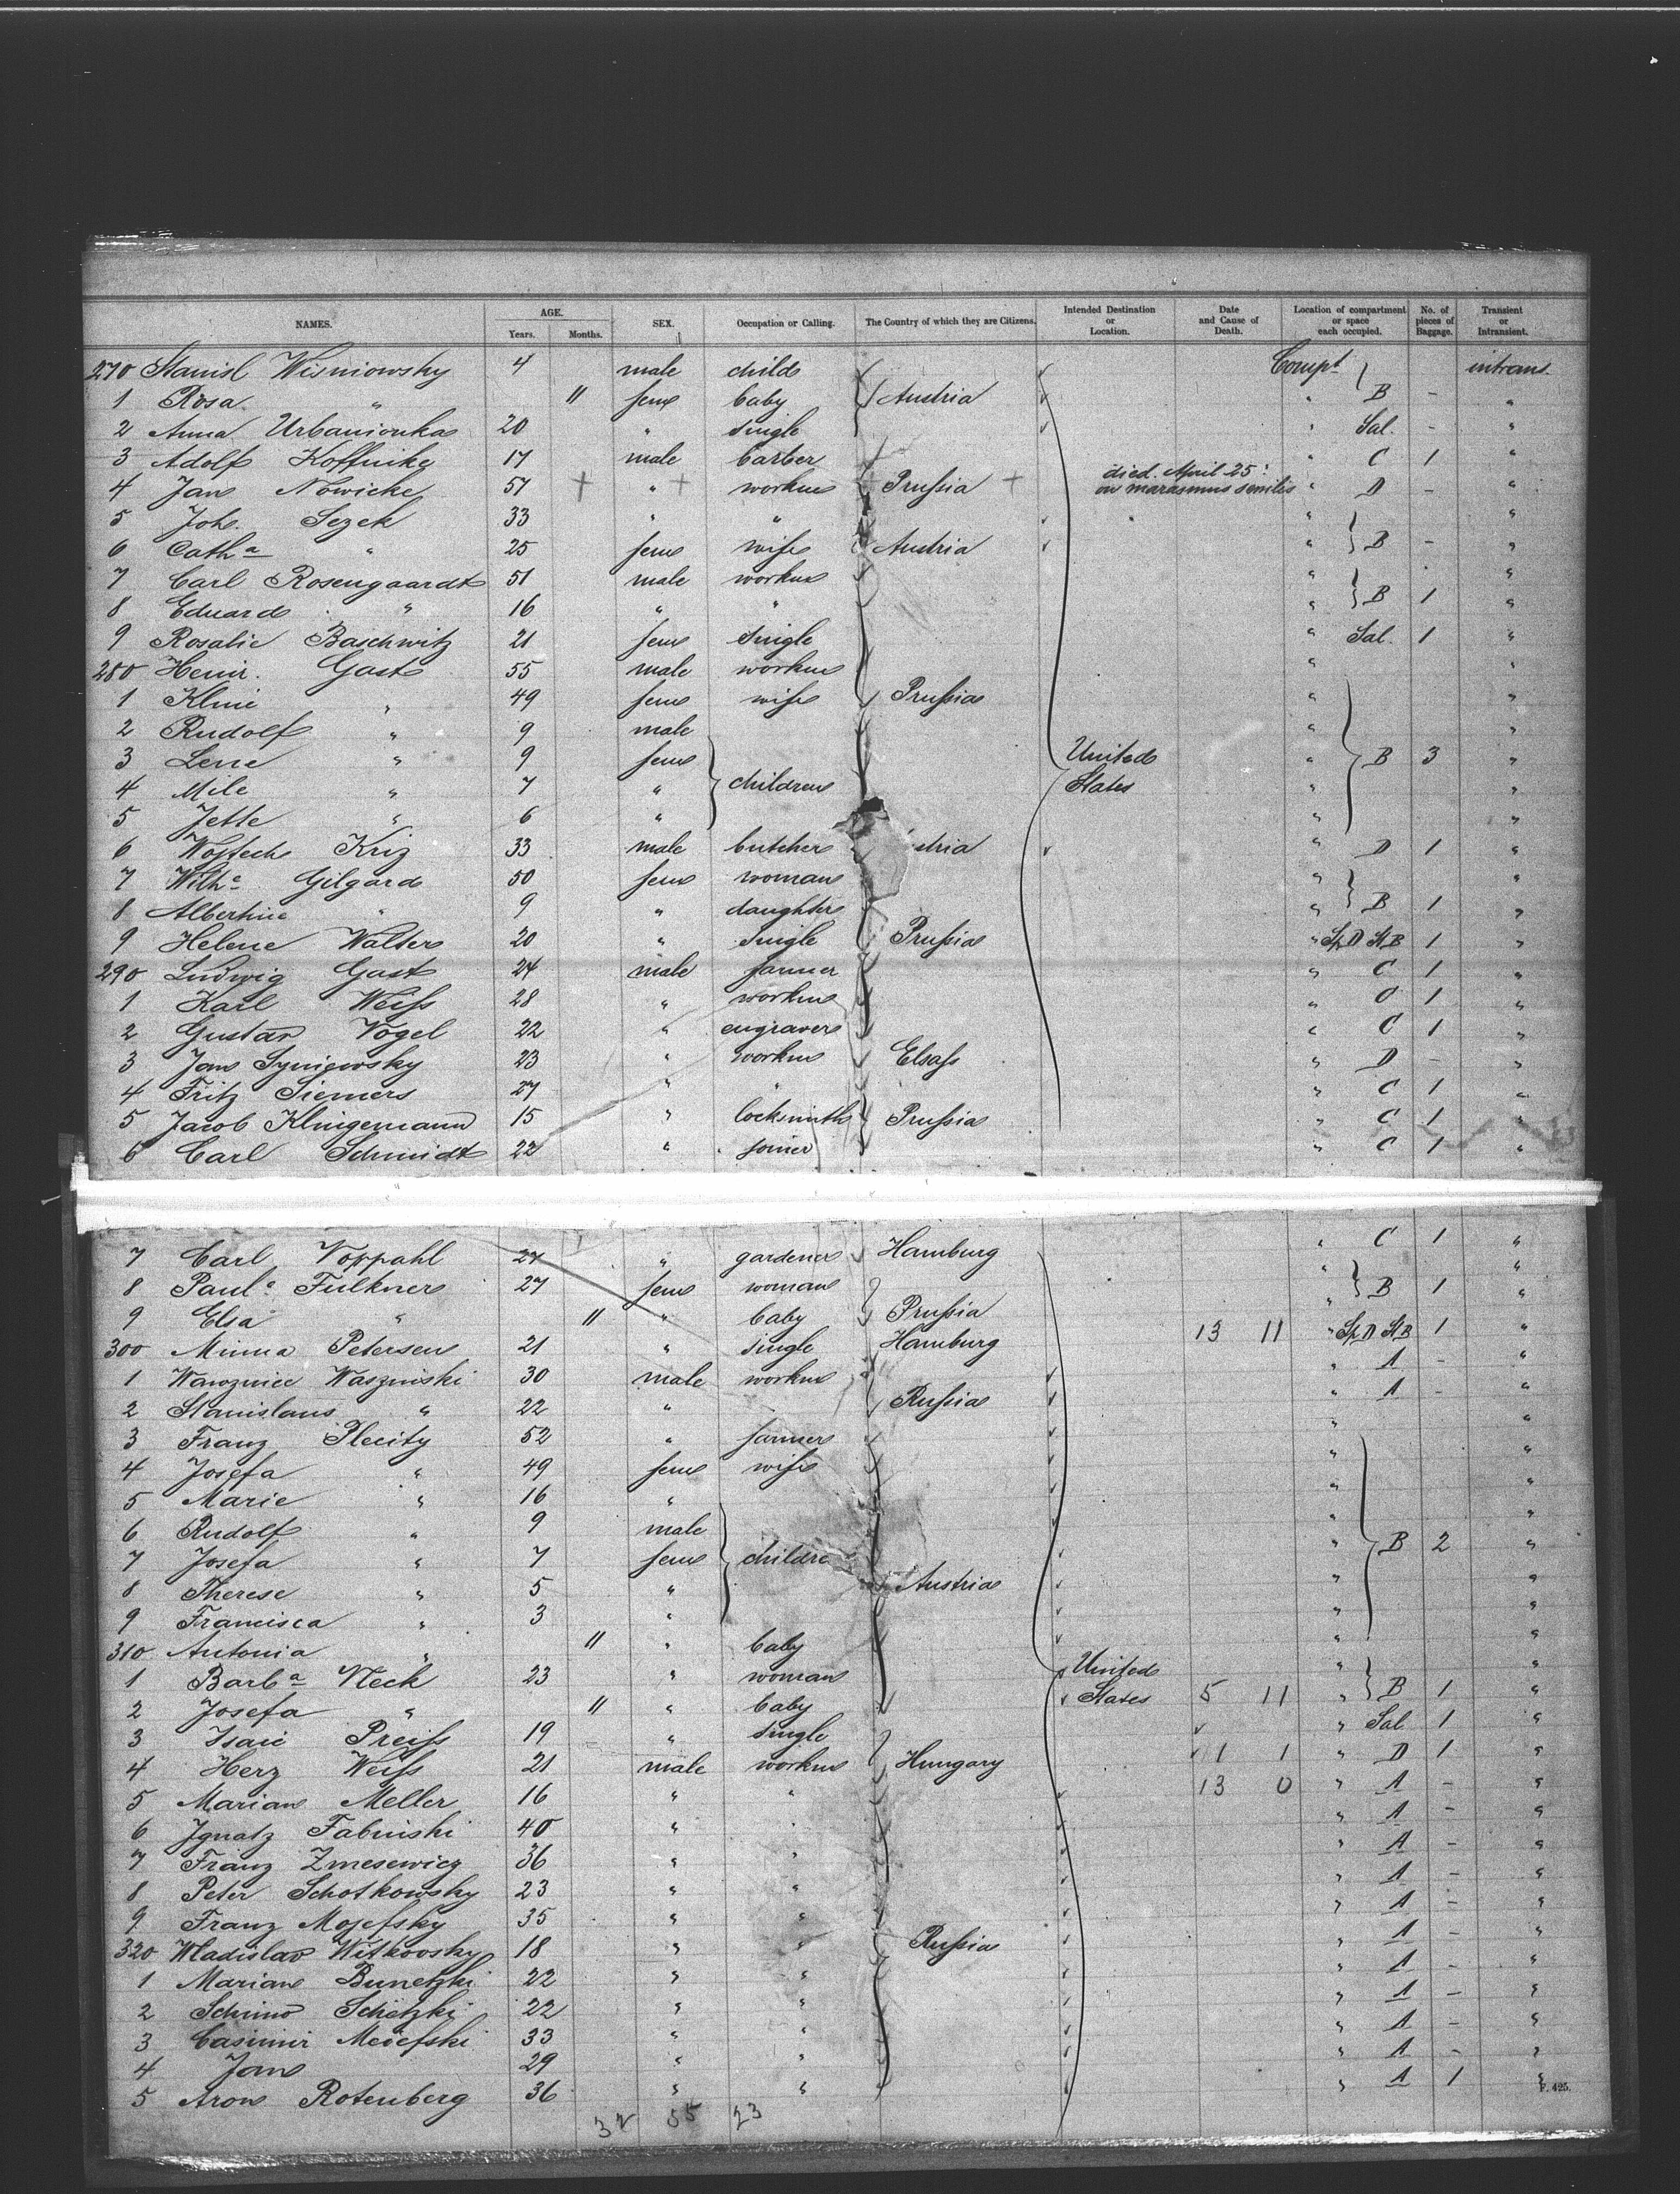 NAMES. AGE. Years. Months. SEX. Occupation or Calling. The Country of which they are Citizens. Intended Destination or Location. Date and Cause of Death. Location of compartment or space each occupied. No. of pieces of Baggage. Transient or Intransient.
270 Stanisl Wisniowsky 4 male child Compt intrans.
1 Rosa " 11 fem baby Austria " B - "
2 Anna Urbanionka 20 " single " Sal. - "
3 Adolf Koffnike 17 male barber " C 1 "
4 Jan Nowicke 57 + " + workm Prussia + died April 25: on marasmus senilis " D - "
5 Joh. Sezek 33 " " " "
6 Catha " 25 fem wife Austria " B - "
7 Carl Rosengaardt 51 male workm " "
8 Eduard " 16 " " " B 1 "
9 Rosalie Baschwitz 21 fem single " Sal. 1 "
280 Heinr. Gast 55 male workm " "
1 Kline " 49 fem wife Prussia " "
2 Rudolf " 9 male " "
3 Lene " 9 fem United " B 3 "
4 Mile " 7 " children States " "
5 Jette " 6 " " "
6 Wojtech Kriz 33 male butcher stria " D 1 "
7 Wilhe Gilgard 50 fem woman " "
8 Albertine " 9 " daughter " B 1 "
9 Helene Walter 20 " single Prussia " Sp D St B 1 "
290 Ludwig Gast 24 male farmer " C 1 "
1 Karl Weiss 28 " workm " C 1 "
2 Gustav Vogel 22 " engraver " C 1 "
3 Jan Syniewsky 23 " workm Elsass " D - "
4 Fritz Siemers 27 " " " C 1 "
5 Jacob Klingemann 15 " locksmith Prussia " C 1 "
6 Carl Schmidt 22 " joiner " C 1 "
7 Carl Voppahl 27 " gardener Hamburg " C 1 "
8 Paule Fulkner 27 fem woman " B 1 "
9 Elsa " 11 " baby Prussia " "
300 Minna Petersen 21 " single Hamburg 13 11 " Sp D St B 1 "
1 Wawrzniec Waszinski 30 male workm " A - "
2 Stanislaus " 22 " Russia " A - "
3 Franz Plecity 52 " farmer " "
4 Josefa " 49 fem wife " "
5 Marie " 16 " " "
6 Rudolf " 9 male " "
7 Josefa " 7 fem childre " B 2 "
8 Therese " 5 " Austria " "
9 Francisca " 3 " " "
310 Antonia " 11 " baby " "
1 Barba Neck 23 " woman United " "
2 Josefa " 11 " baby States 5 11 " B 1 "
3 Isaie Preiss 19 " single " Sal 1 "
4 Herz Weiss 21 male workm Hungary 11 1 " D 1 "
5 Marian Meller 16 " " 13 0 " A - "
6 Ignatz Fabinski 40 " " " A - "
7 Franz Zmesewicz 36 " " " A - "
8 Peter Schotkowsky 23 " " " A - "
9 Franz Mosefsky 35 " " " A - "
320 Wladislav Witkovsky 18 " " Russia " A - "
1 Marian Bunetzki 22 " " " A - "
2 Schimo Schetzki 22 " " " A - "
3 Casimir Meiefski 33 " " " A - "
4 Jan 29 " " " A - "
5 Aron Rotenberg 36 " " " A 1 "
F. 425.
32 55 23